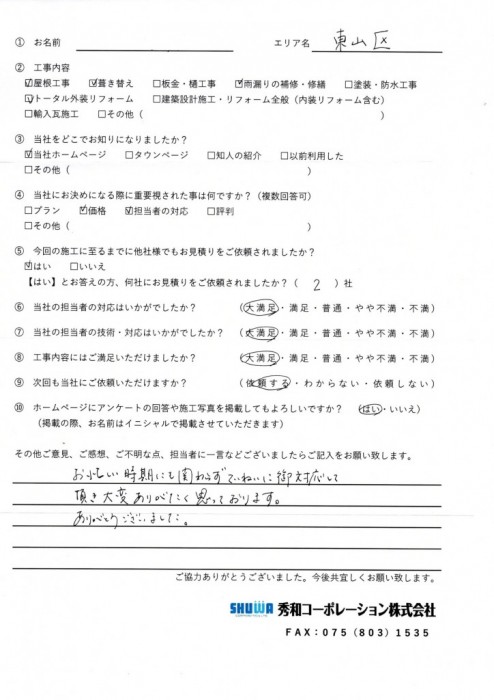 ① お名前 エリア名 東山区
② 工事内容
☑屋根工事 ☑葺き替え □板金・樋工事 ☑雨漏りの補修・修繕 □塗装・防水工事
☑トータル外装リフォーム □建築設計施工・リフォーム全般（内装リフォーム含む）
□輸入瓦施工 □その他（ ）
③ 当社をどこでお知りになりましたか？
☑当社ホームページ □タウンページ □知人の紹介 □以前利用した
□その他（ ）
④ 当社にお決めになる際に重要視された事は何ですか？（複数回答可）
□プラン ☑価格 ☑担当者の対応 □評判
□その他（ ）
⑤ 今回の施工に至るまでに他社様でもお見積りをご依頼されましたか？
☑はい □いいえ
【はい】とお答えの方、何社にお見積りをご依頼されましたか？（ 2 ）社
⑥ 当社の担当者の対応はいかがでしたか？ （大満足・満足・普通・やや不満・不満）
⑦ 当社の担当者の技術・対応はいかがでしたか？ （大満足・満足・普通・やや不満・不満）
⑧ 工事内容にはご満足いただけましたか？ （大満足・満足・普通・やや不満・不満）
⑨ 次回も当社にご依頼いただけますか？ （依頼する・わからない・依頼しない）
⑩ ホームページにアンケートの回答や施工写真を掲載してもよろしいですか？ （はい・いいえ）
（掲載の際、お名前はイニシャルで掲載させていただきます）
その他ご意見、ご感想、ご不明な点、担当者に一言などございましたらご記入をお願い致します。
お忙しい時期にも関わらずていねいに御対応して
頂き大変ありがたく思っております。
ありがとうございました。
ご協力ありがとうございました。今後共宜しくお願い致します。
SHUWA 秀和コーポレーション株式会社
FAX：075（803）1535